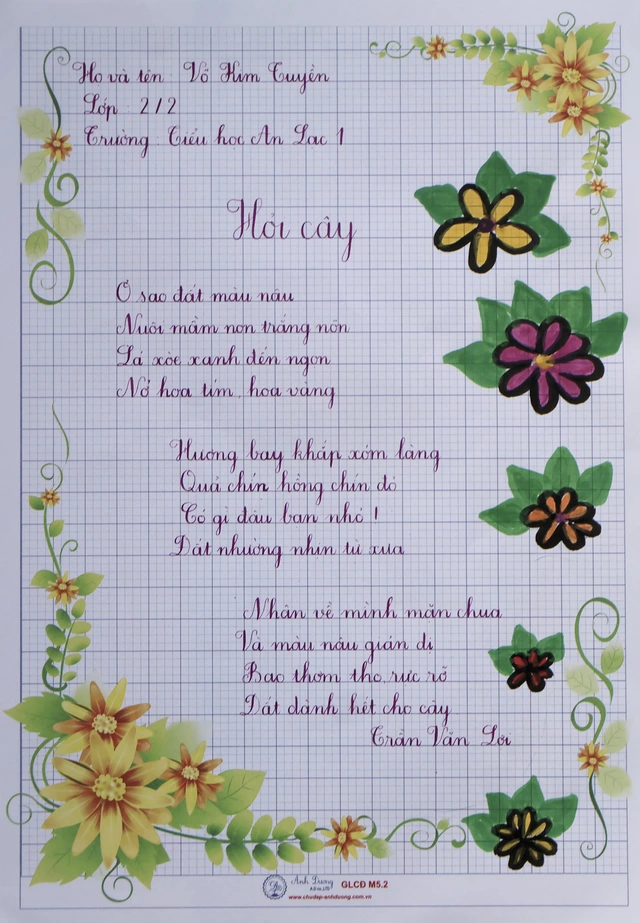 Họ và tên : Võ Kim Tuyền
Lớp : 2/2
Trường : Tiểu học An Lạc 1
Hỏi cây
Ở sao đất màu nâu
Nuôi mầm non trắng nõn
Lá xòe xanh đến ngọn
Nở hoa tím, hoa vàng
Hương bay khắp xóm làng
Quả chín hồng chín đỏ
Có gì đâu bạn nhỏ !
Đất nhường nhịn từ xưa
Nhận về mình mặn chua
Và màu nâu giản dị
Bao thơm tho, rực rỡ
Đất dành hết cho cây
Trần Văn Lợi
Ánh Dương
A.D co.,LTD
GLCĐ M5.2
www.chudep-anhduong.com.vn